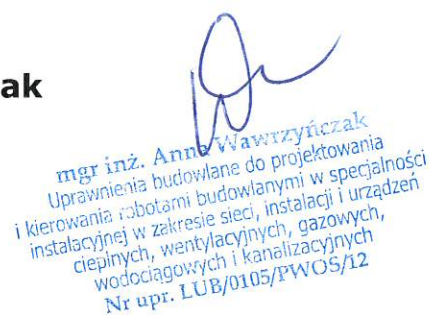 ak
mgr inż. Anna Wawrzyńczak
Uprawnienia budowlane do projektowania
i kierowania robotami budowlanymi w specjalności
instalacyjnej w zakresie sieci, instalacji i urządzeń
cieplnych, wentylacyjnych, gazowych,
wodociągowych i kanalizacyjnych
Nr upr. LUB/0105/PWOS/12